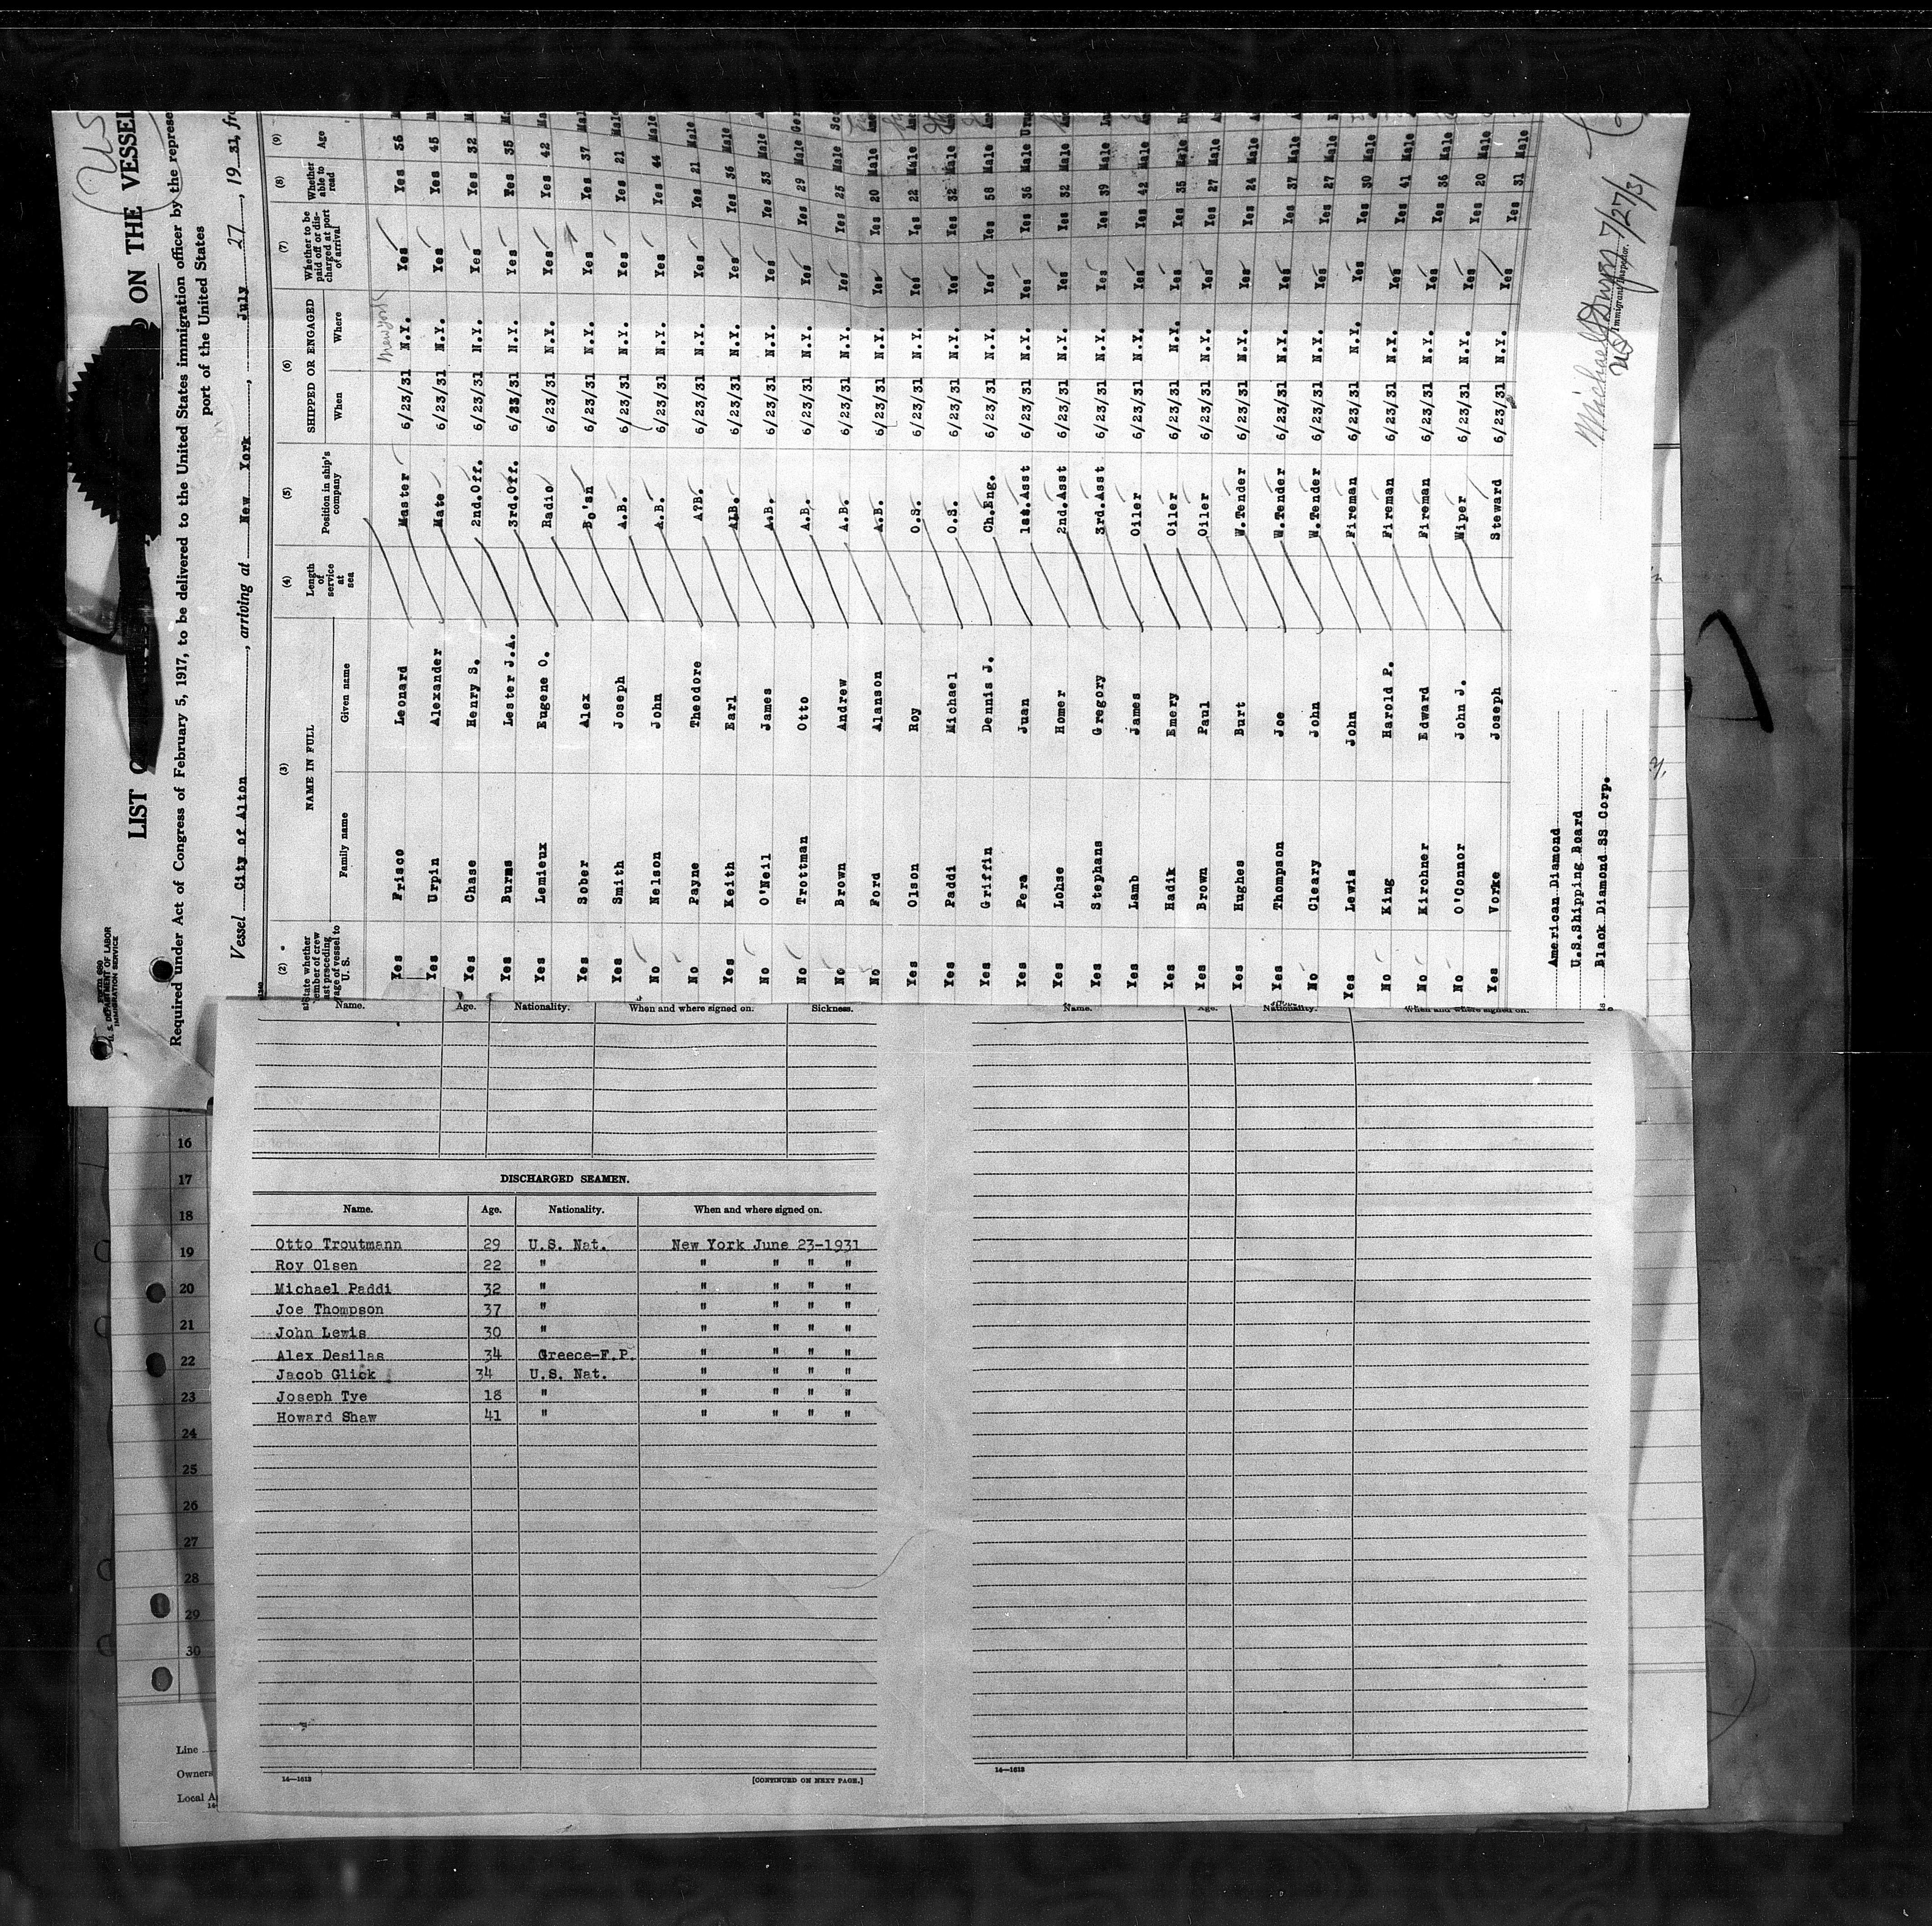 Form 680
U. S. DEPARTMENT OF LABOR
IMMIGRATION SERVICE
US
LIST
ON THE VESSEL
Required under Act of Congress of February 5, 1917, to be delivered to the United States immigration officer by the represe
port of the United States
Vessel City of Alton, arriving at New York, July 27, 19 31, fro
(2) (3) (4) (5) (6) (7) (8) (9)
State whether member of crew last preceding voyage of vessel to U. S.
NAME IN FULL
Family name Given name
Length of service at sea
Position in ship's company
SHIPPED OR ENGAGED
When Where
Whether to be paid off or discharged at port of arrival
Whether able to read
Age
New York
Yes Frisco Leonard Master 6/23/31 N.Y. Yes Yes 36 M
Yes Urpin Alexander Mate 6/23/31 N.Y. Yes Yes 45 M
Yes Chase Henry S. 2nd.Off. 6/23/31 N.Y. Yes Yes 32 M
Yes Burns Lester J.A. 3rd.Off. 6/23/31 N.Y. Yes Yes 35 Ma
Yes Lemieux Eugene O. Radio 6/23/31 N.Y. Yes Yes 42 Ma
Yes Sober Alex Bo'sn 6/23/31 N.Y. Yes Yes 37 Mal
Yes Smith Joseph A.B. 6/23/31 N.Y. Yes Yes 21 Male
No Nelson John A.B. 6/23/31 N.Y. Yes Yes 44 Male
No Payne Theodore A.B. 6/23/31 N.Y. Yes Yes 21 Male
Yes Keith Earl A.B. 6/23/31 N.Y. Yes Yes 36 Male
No O'Neil James A.B. 6/23/31 N.Y. Yes Yes 33 Male A
No Trottman Otto A.B. 6/23/31 N.Y. Yes Yes 29 Male Ger
No Brown Andrew A.B. 6/23/31 N.Y. Yes Yes 25 Male Sco
No Ford Alanson A.B. 6/23/31 N.Y. Yes Yes 20 Male Ame
Yes Olson Roy O.S. 6/23/31 N.Y. Yes Yes 22 Male
Yes Paddi Michael O.S. 6/23/31 N.Y. Yes Yes 32 Male
Yes Griffin Dennis J. Ch.Eng. 6/23/31 N.Y. Yes Yes 58 Male
Yes Pera Juan 1st.Asst 6/23/31 N.Y. Yes Yes 36 Male Uru
Yes Lohse Homer 2nd.Asst 6/23/31 N.Y. Yes Yes 32 Male
Yes Stephans Gregory 3rd.Asst 6/23/31 N.Y. Yes Yes 39 Male
Yes Lamb James Oiler 6/23/31 N.Y. Yes Yes 42 Male
Yes Hadik Emery Oiler 6/23/31 N.Y. Yes Yes 35 Male
Yes Brown Paul Oiler 6/23/31 N.Y. Yes Yes 27 Male A
Yes Hughes Burt W.Tender 6/23/31 N.Y. Yes Yes 24 Male A
Yes Thompson Joe W.Tender 6/23/31 N.Y. Yes Yes 37 Male A
No Cleary John W.Tender 6/23/31 N.Y. Yes Yes 27 Male
Yes Lewis John Fireman 6/23/31 N.Y. Yes Yes 30 Male
No King Harold P. Fireman 6/23/31 N.Y. Yes Yes 41 Male
No Kirchner Edward Fireman 6/23/31 N.Y. Yes Yes 36 Male
No O'Connor John J. Wiper 6/23/31 N.Y. Yes Yes 20 Male
Yes Vorke Joseph Steward 6/23/31 N.Y. Yes Yes 31 Male
American Diamond
U.S.Shipping Board
Black Diamond SS Corp.
7/27/31
Immigrant Inspector.
Name. Age. Nationality. When and where signed on. Sickness.
DISCHARGED SEAMEN.
Name. Age. Nationality. When and where signed on.
Otto Troutmann 29 U.S. Nat. New York June 23-1931
Roy Olsen 22 " " " " "
Michael Paddi 32 " " " " "
Joe Thompson 37 " " " " "
John Lewis 30 " " " " "
Alex Desilas 34 Greece-F.P. " " " "
Jacob Glick 34 U.S. Nat. " " " "
Joseph Tye 18 " " " " "
Howard Shaw 41 " " " " "
14—1613
[CONTINUED ON NEXT PAGE.]
Name. Age. Nationality. When and where signed on.
14—1613
16
17
18
19
20
21
22
23
24
25
26
27
28
29
30
Line
Owners
Local A
14-